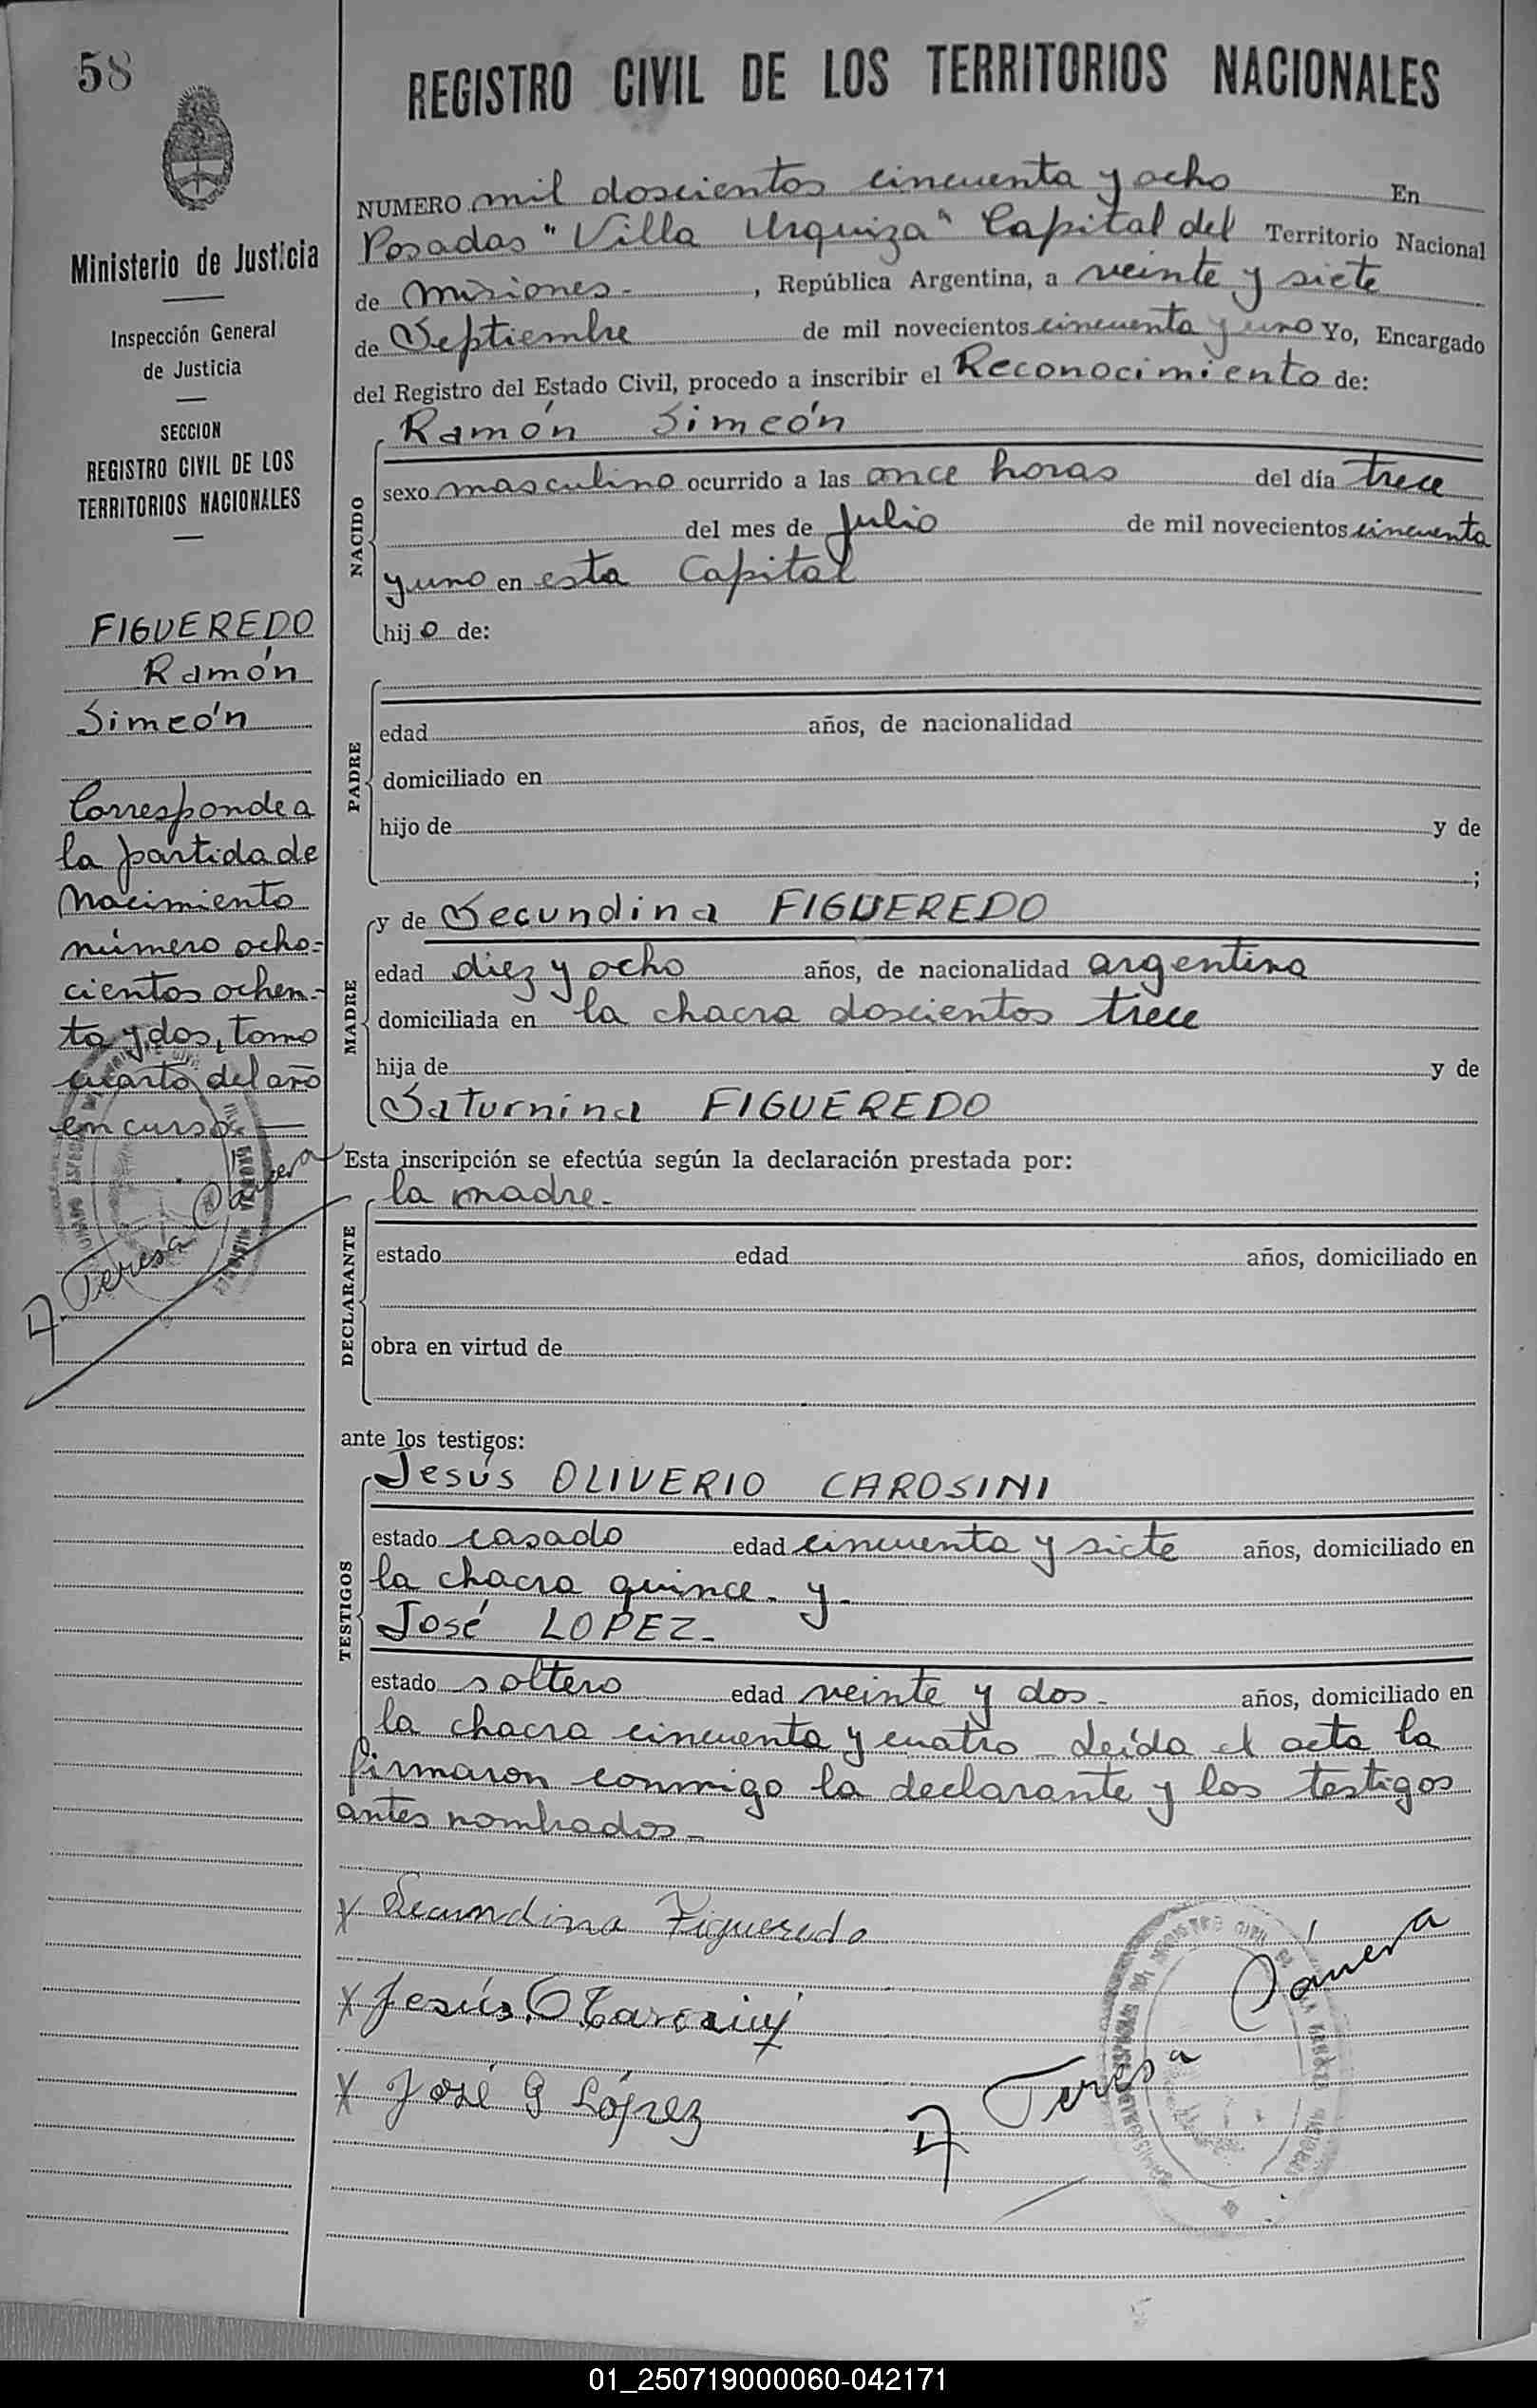 58
REGISTRO CIVIL DE LOS TERRITORIOS NACIONALES
Ministerio de Justicia
Inspección General
de Justicia
SECCION
REGISTRO CIVIL DE LOS
TERRITORIOS NACIONALES
FIGUEREDO
Ramón
Simeón
Corresponde a
la partida de
Nacimiento
número ocho-
cientos ochen-
ta y dos, tomo
cuarto del año
en curso.
A. Teresa
NUMERO mil doscientos cincuenta y ocho En
Posadas "Villa Urquiza" Capital del Territorio Nacional
de Misiones- , República Argentina, a veinte y siete
de Septiembre de mil novecientos cincuenta y uno Yo, Encargado
del Registro del Estado Civil, procedo a inscribir el Reconocimiento de:
Ramón Simeón
NACIDO
sexo masculino ocurrido a las once horas del día trece
del mes de Julio de mil novecientos cincuenta
y uno en esta Capital
hijo de:
PADRE
edad años, de nacionalidad
domiciliado en
hijo de y de
;
MADRE
y de Secundina FIGUEREDO
edad diez y ocho años, de nacionalidad argentina
domiciliada en la chacra doscientos trece
hija de y de
Saturnina FIGUEREDO
Esta inscripción se efectúa según la declaración prestada por:
DECLARANTE
la madre-
estado edad años, domiciliado en
obra en virtud de
ante los testigos:
TESTIGOS
Jesús OLIVERIO CAROSINI
estado casado edad cincuenta y siete años, domiciliado en
la chacra quince- y-
José LOPEZ-
estado soltero edad veinte y dos- años, domiciliado en
la chacra cincuenta y cuatro- Leída el acta la
firmaron conmigo la declarante y los testigos
antes nombrados-
x Secundina Figueredo
x Jesús O Carosini
x José G López
A Teresa
01_250719000060-042171